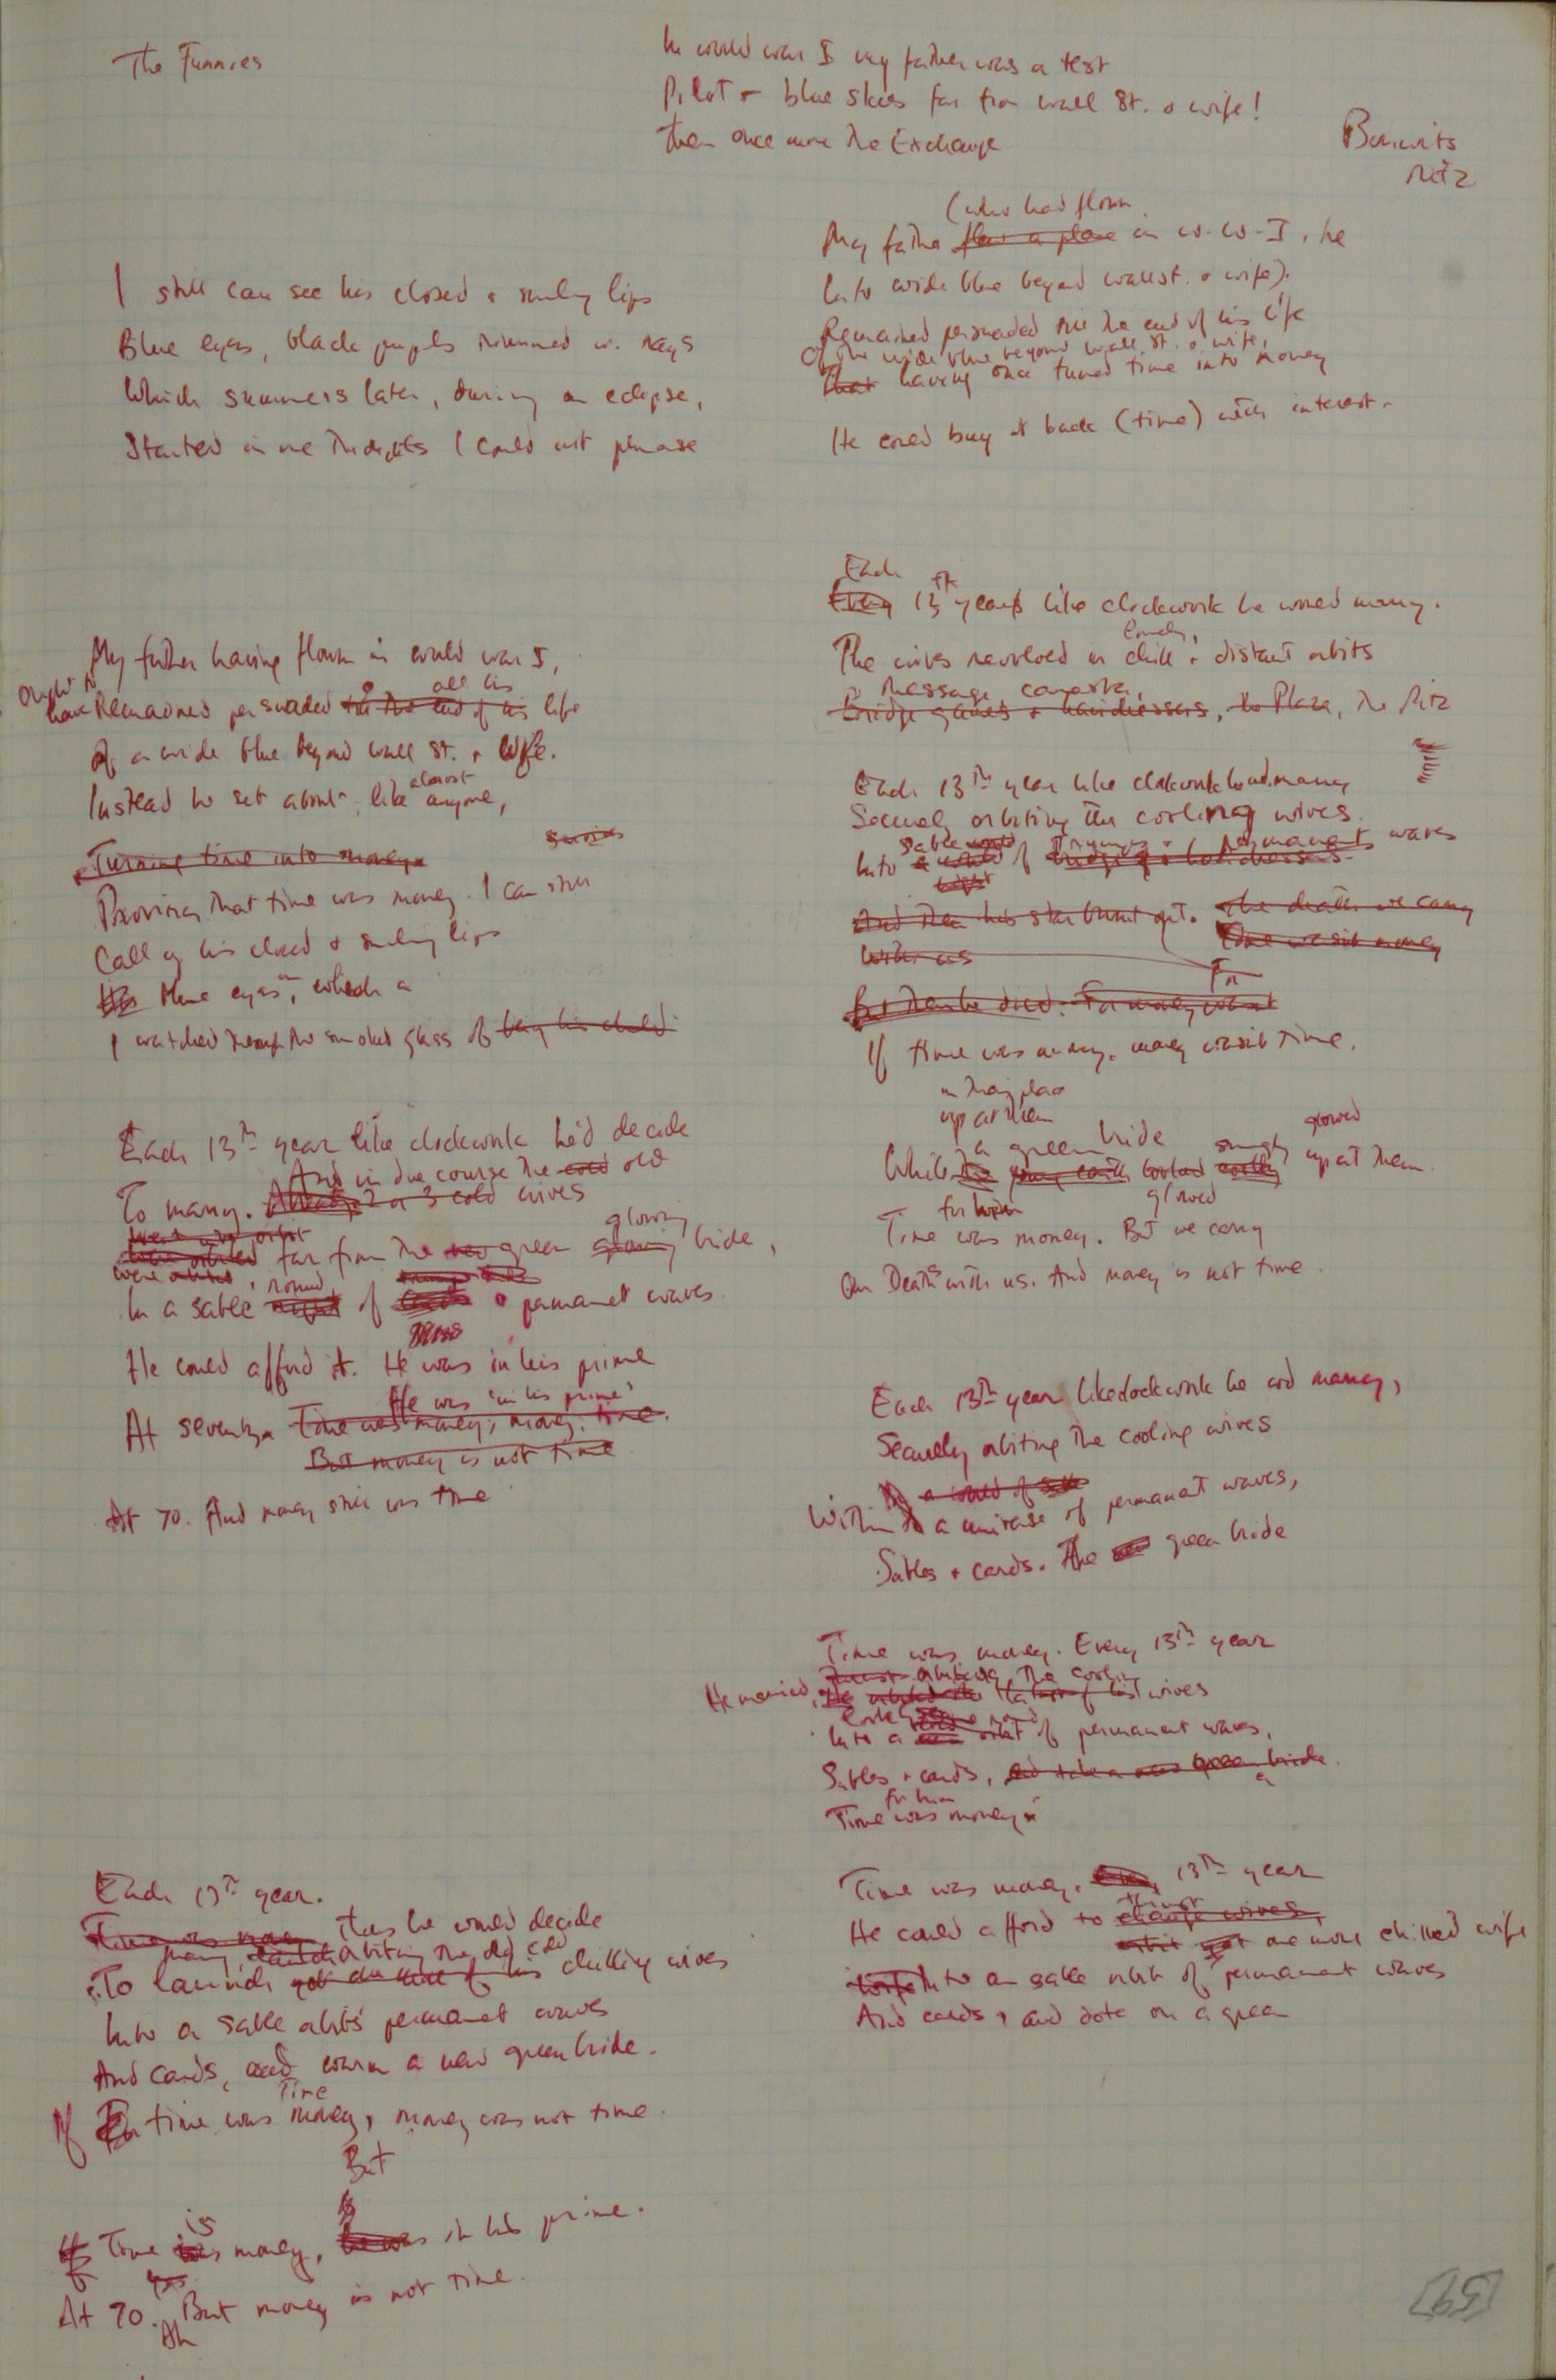 The Funnies
In world war I my father was a test
Pilot + blue skies far from wall St. & wife!
Then once more the Exchange
Ritz
(who had flown
My father flew a plane in W-W-I, he
Into wide blue beyond wall st. & wife).
Remained persuaded till the end of his life
Of the wide blue beyond wall st. & wife,
That having once turned time into money
He could buy it back (time) with interest.
I still can see his closed & smiling lips
Blue eyes, black pupils rimmed w. rays
Which summers later, during an eclipse,
Started in me thoughts I could not phrase
Each th
Every 13 years like clockwork he would marry.
lonely,
The wives revolved in chill & distant orbits
Message, canasta,
Bridge games & hairdressers, the Plaza, the Ritz
My father having flown in world war I,
ought to all his
have Remained persuaded till the end of his life
Of a wide blue beyond wall St. & wife.
almost
Instead he set about, like anyone,
Turning time into money
Proving that time was money. I can still
Call up his closed & smiling lips
His blue eyes, which a
I watched through the smoked glass of being his child
Each 13th year like clockwork he'd marry
Securely orbiting the cooling wives
sable permanent waves
Into a world of bridge & hairdressers
And then his star burnt out. The death we carry
with us Time wasn't money
For
But then he died. For money
If time was money, money wasn't time.
in their place
up at them
a green bride simply glowed
While the young earth looked coolly up at them.
for him glowed
Time was money. But we carry
Our Deaths with us. And money is not time.
Each 13th year like clockwork he'd decide
And in due course the cold old
To marry. Already 2 or 3 cold wives
went into orbit glowing
were orbited far from the new green glowing bride,
round
In a sable night of cards & permanent waves.
He could afford it. He was in his prime
He was "in his prime"
At seventy. Time was money; money, time.
But money is not time
At 70. And money still was time
Each 13th year like clockwork he wd marry,
Securely orbiting the cooling wives
a world of
Within a universe of permanent waves,
Sables & cards. The green bride
Time was money. Every 13th year
orbiting the cooling
He married, He wives
Into a orbit of permanent waves,
Sables & cards, and take a new green bride.
for him
Time was money
Each 13th year.
Time was money Thus he would decide
orbiting the old cold
To launch chilling wives
Into a sable orbits permanent waves
And cards, and warm a new green bride.
Time
If For time was money, money was not time.
But
is
If Time was money, he was in his prime.
At 70. But money is not time.
Ah
Time was money. Every 13th year
thrust
He could afford to change wives,
orbit yet one more chilled wife
Into an sable orbit of permanent waves
And cards, and dote on a green
[59]